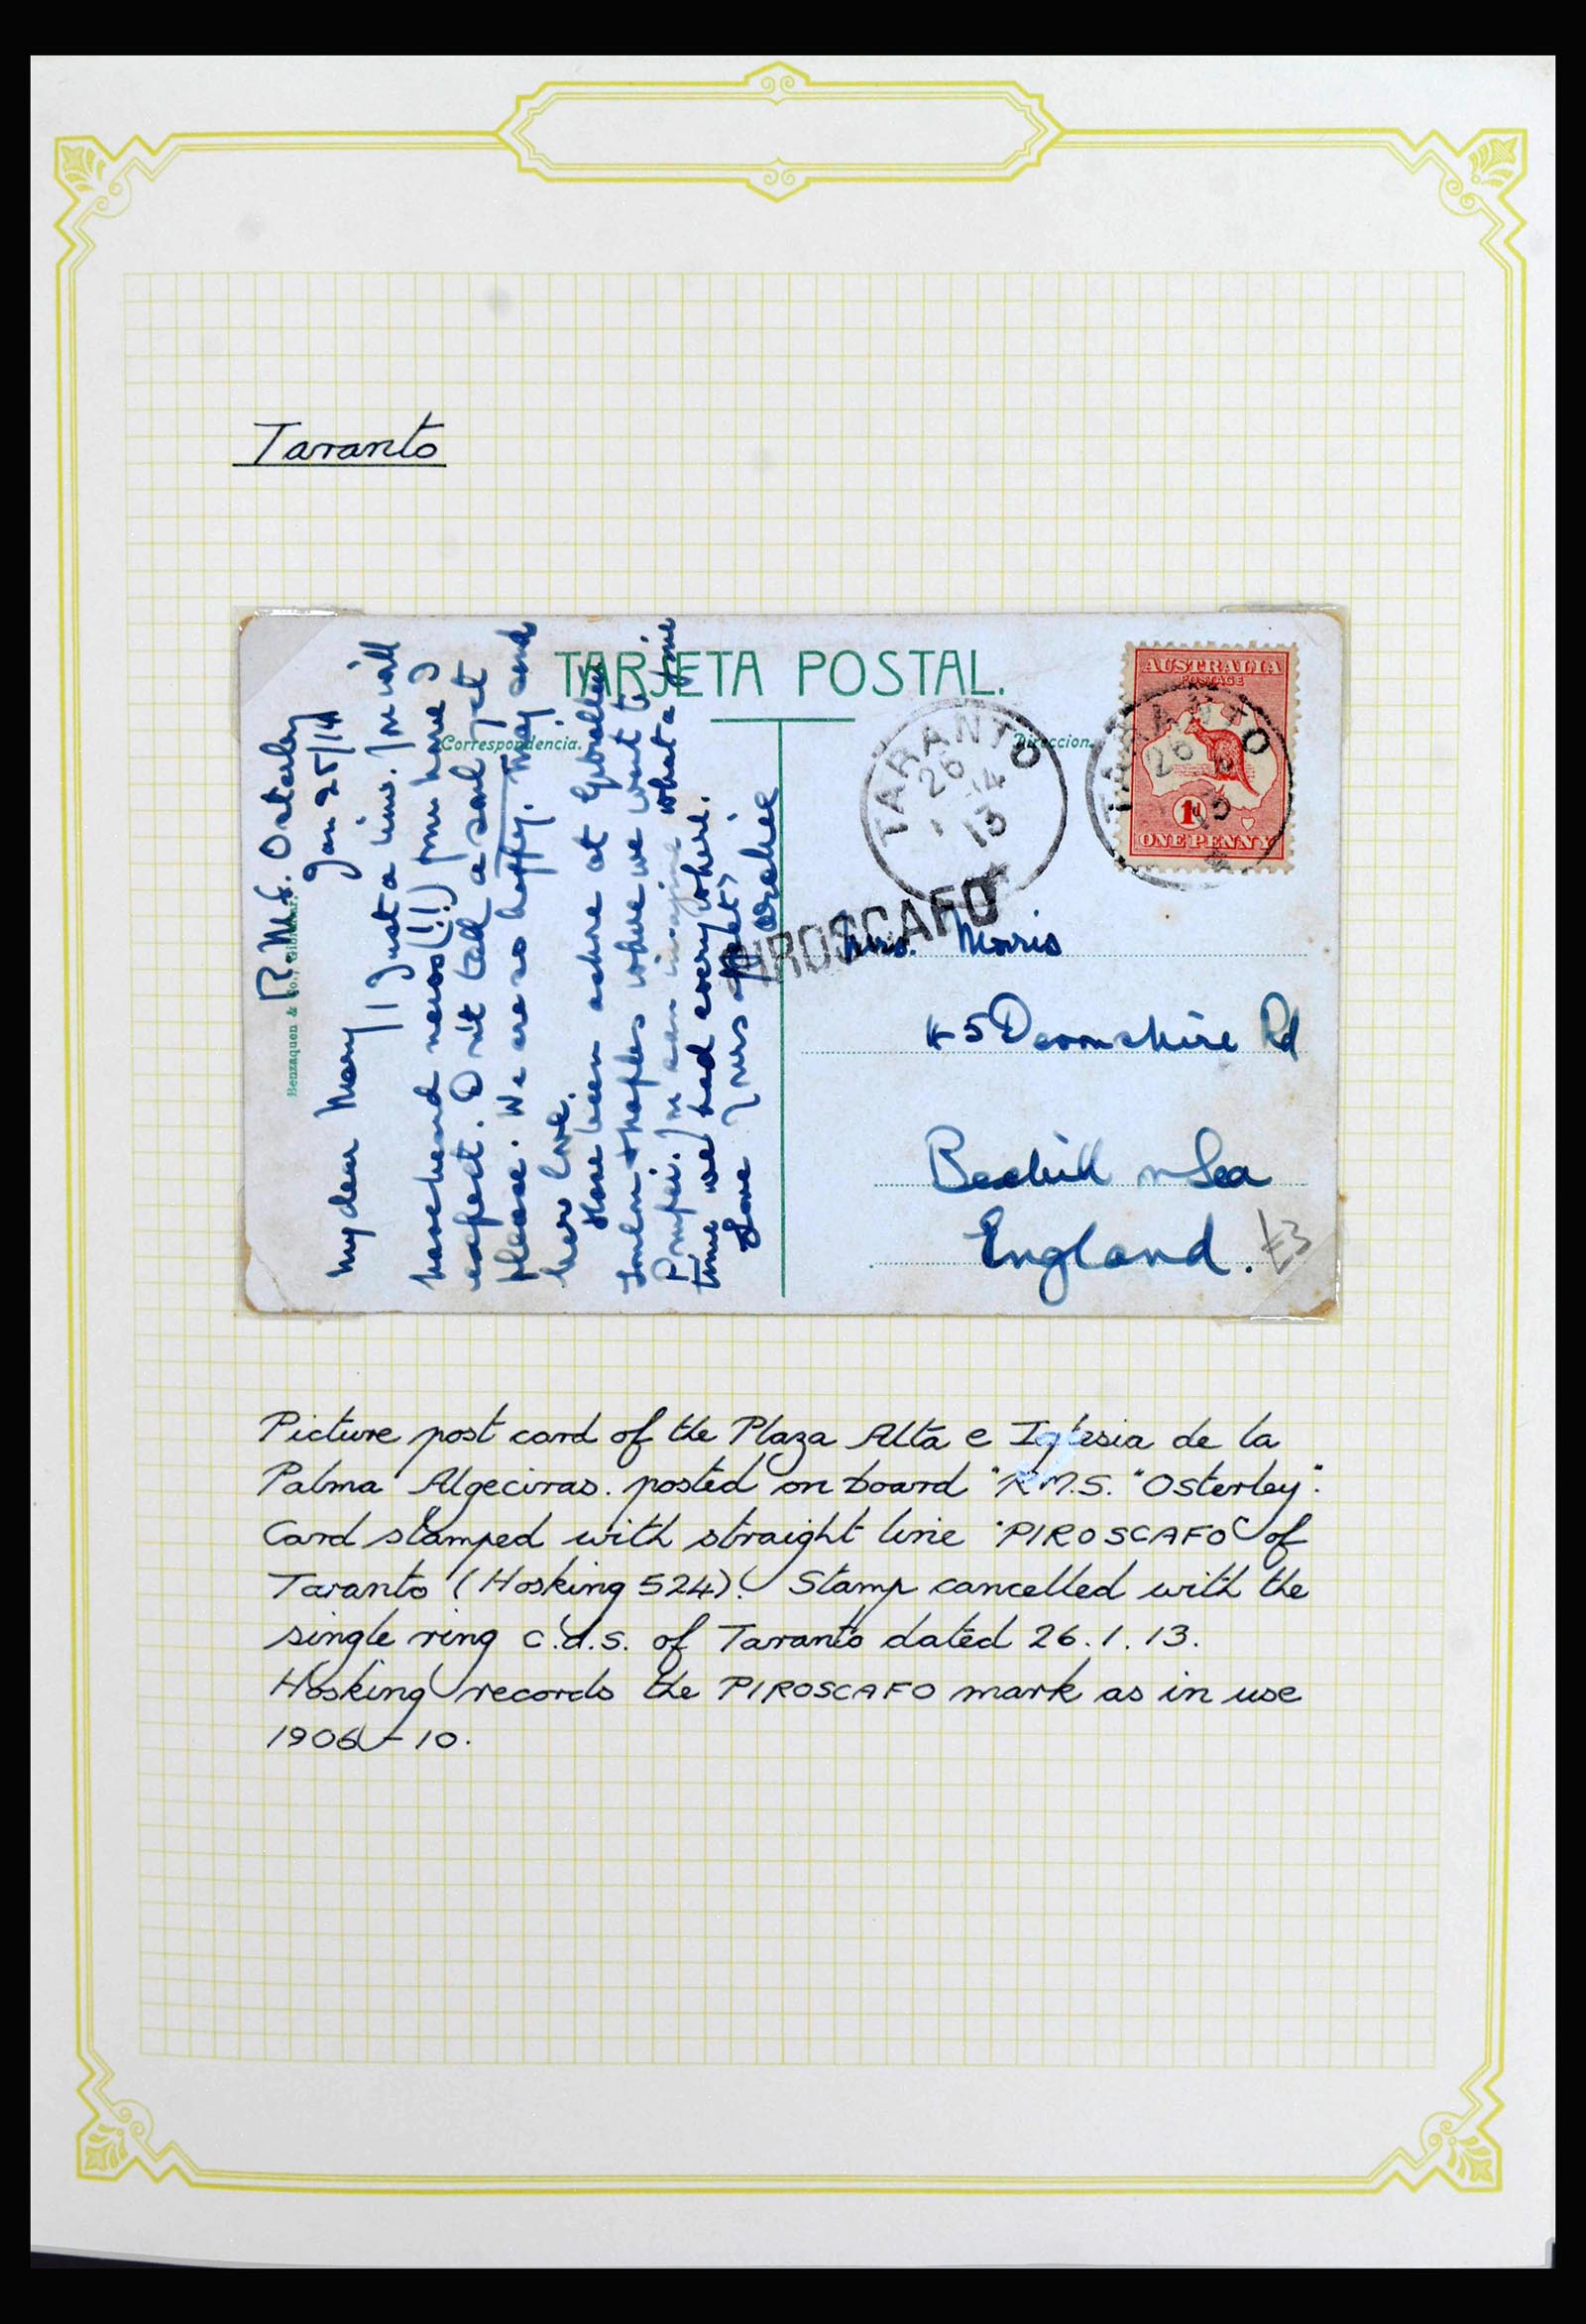 Taranto
TARJETA POSTAL.
Correspondencia.
Direccion.
Benzaquen & Co., Gibraltar.
R.M.S. Osterley
Jan 25/14
My dear Mary / Just a line. You will
have heard news (!!) you have I
expect. Don't tell a soul yet
please. We are so happy. May send
her love.
Have been ashore at Gibraltar
Toulon & Naples where we went to
Pompeii. You can imagine what a fine
time we had everywhere.
Love yrs
AUSTRALIA
POSTAGE
1d
ONE PENNY
TARANTO
26
1
14
13
TARANTO
26
13
PIROSCAFO
Mrs. Morris
45 Devonshire Rd
Bexhill on Sea
England.
£3
Picture post card of the Plaza Alta e Iglesia de la
Palma Algeciras. posted on board "R.M.S. "Osterley".
Card stamped with straight line "PIROSCAFO" of
Taranto (Hosking 524). Stamp cancelled with the
single ring c.d.s. of Taranto dated 26.1.13.
Hosking records the PIROSCAFO mark as in use
1906-10.